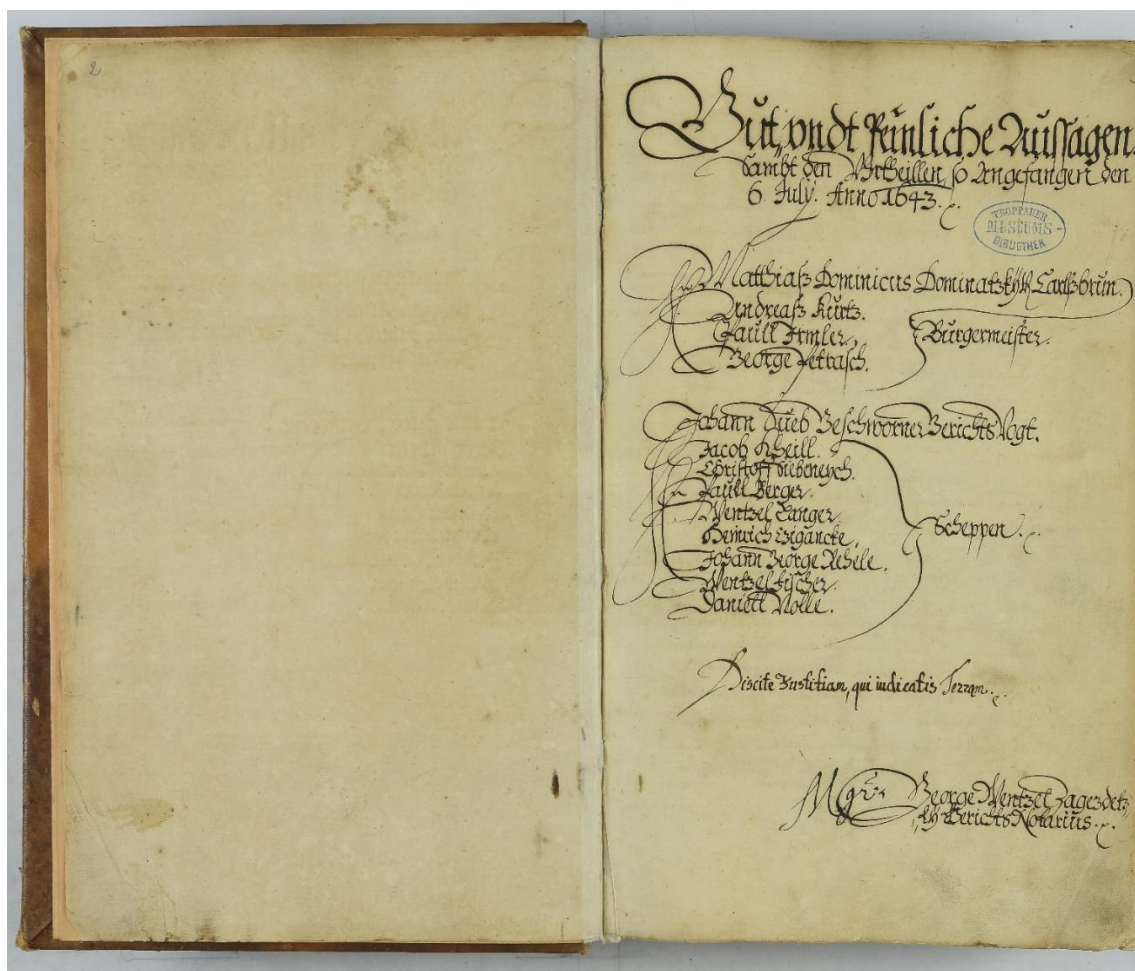 2
Gut, vndt Peinliche Aussagen.
Sambt den Vrtheillen, so Angefangen den
6. July. Anno 1643.
TROPPAUER
MUSEUMS-
BIBLIOTHEK
Matthiaß Dominicus Carlßbrun.
Andreaß Kurtz.
Paull Irmler.
Burgermeister.
George Petrasch.
Johann Dueb Beschworner Gerichts Vogt.
Jacob Kheill.
Christoff Siebeneych.
Paull Berger.
Wentzel Langer.
Scheppen.
Heinrich Czigancke.
Johann George Rehele.
Wentzel Fischer.
Daniell Nolle.
Discite Iustitiam, qui iudicatis Terram.
George Wentzel
Gerichts Notarius.